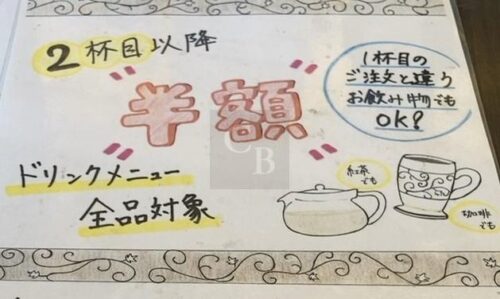 2杯目以降
"半額"
1杯目の
ご注文と違う
お飲み物でも
OK!
ドリンクメニュー
全品対象
紅茶
でも
珈琲
でも
CB